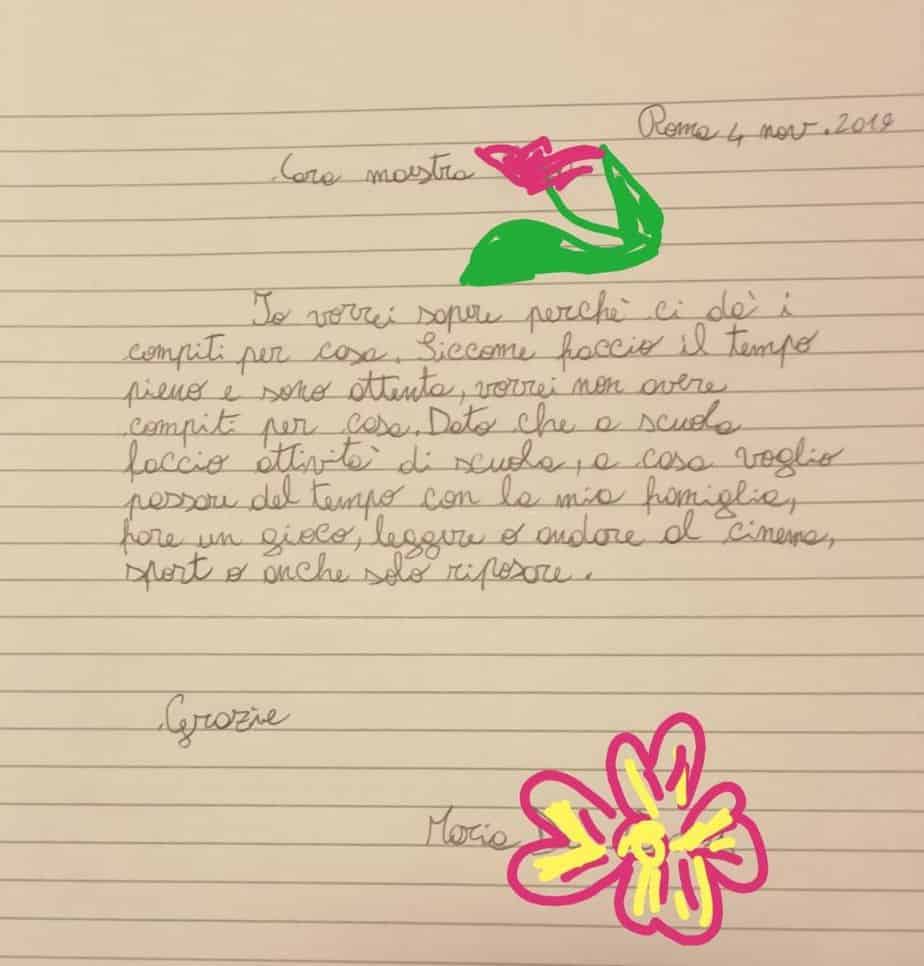 Roma 4 nov. 2019
Cara maestra
Io vorrei sapere perchè ci dà i
compiti per casa. Siccome faccio il tempo
pieno e sono attenta, vorrei non avere
compiti per casa. Dato che a scuola
faccio attività di scuola, a casa voglio
passare del tempo con la mia famiglia,
fare un gioco, leggere o andare al cinema,
sport o anche solo riposare.
Grazie
Maria